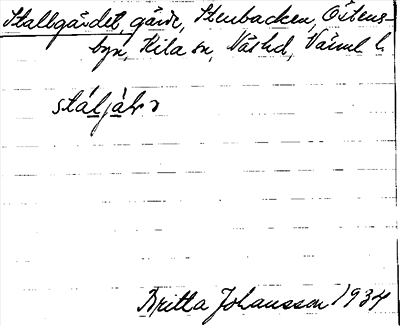 Stallgärdet, gärde, Stenbacken, Östens-
byn, Kila sn, Näshd, Värml l.
stáljàk
Britta Johansson 1934